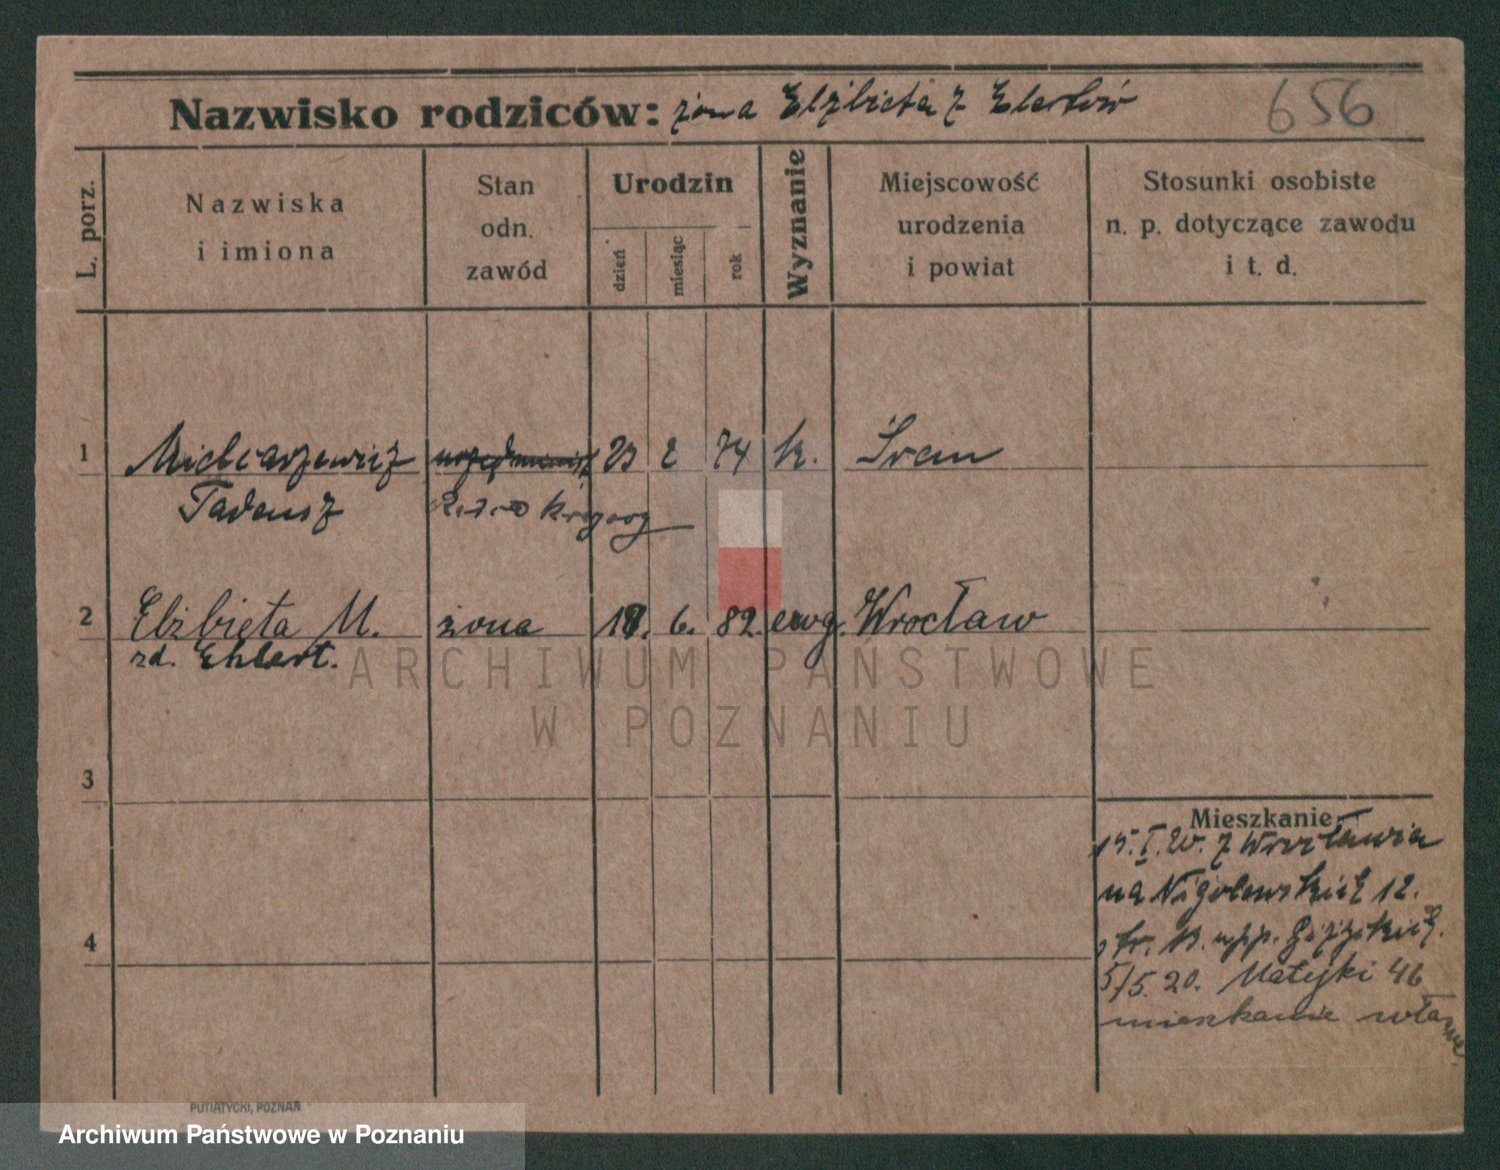 Nazwisko rodziców: żona Elżbieta z Elertów
656
L. porz.
Nazwiska
i imiona
Stan
odn.
zawód
Urodzin
dzień
miesiąc
rok
Wyznanie
Miejscowość
urodzenia
i powiat
Stosunki osobiste
n. p. dotyczące zawodu
i t. d.
1 urzędnik 23 2 74 k. Śrem
Tadeusz
2 Elżbieta M. żona 18. 6. 82. ewg. Wrocław
zd. Ehlert.
3
4
Mieszkanie
15.I.20. z Wrocławia
na 12.
5/5.20. Matejki 46
mieszkanie własne
PUTIATYCKI, POZNAŃ
ARCHIWUM PAŃSTWOWE
W POZNANIU
Archiwum Państwowe w Poznaniu